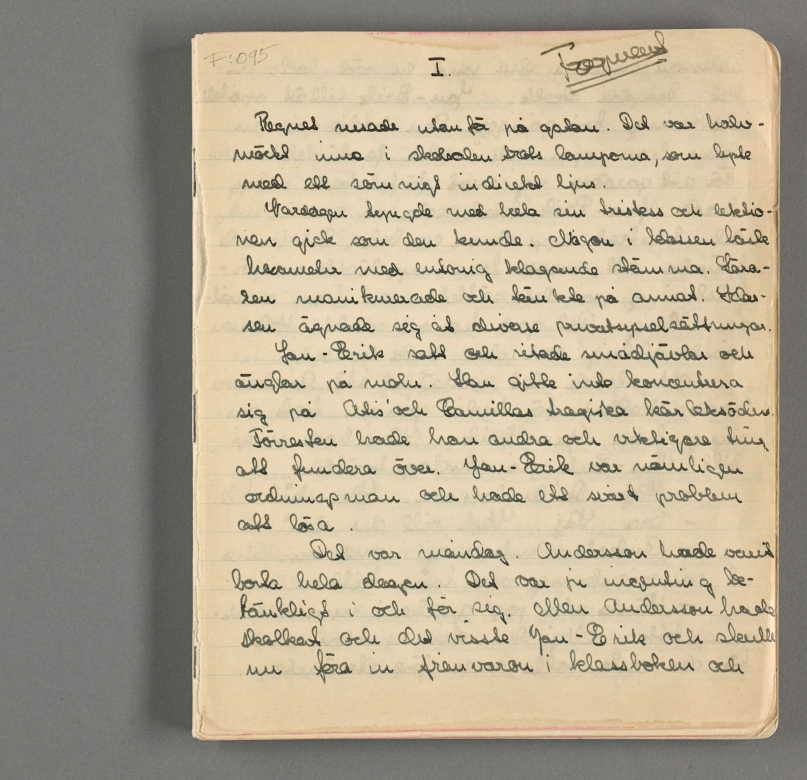 F:095
I.
Fragment
Regnet rusade utanför på gatan. Det var halv-
mörkt inne i skolsalen trots lamporna, som lyste
med ett sömnigt indirekt ljus.
Vardagen tyngde med hela sin tristess och lektio-
nen gick som den kunde. Någon i klassen läste
hexameter med entonig klagande stämma. Lära-
ren manikurerade och tänkte på annat. Klas-
sen ägnade sig åt diverse privatsysselsättningar.
Jan-Erik satt och ritade smådjävlar och
änglar på moln. Han gitte inte koncentrera
sig på Atis' och Camillas tragiska kärleksöden.
Förresten hade han andra och viktigare ting
att fundera över. Jan-Erik var nämligen
ordningsman och hade ett svårt problem
att lösa.
Det var måndag. Andersson hade varit
borta hela dagen. Det var ju ingenting be-
tänkligt i och för sig. Men Andersson hade
skolkat och det visste Jan-Erik och skulle
nu föra in frånvaron i klassboken och